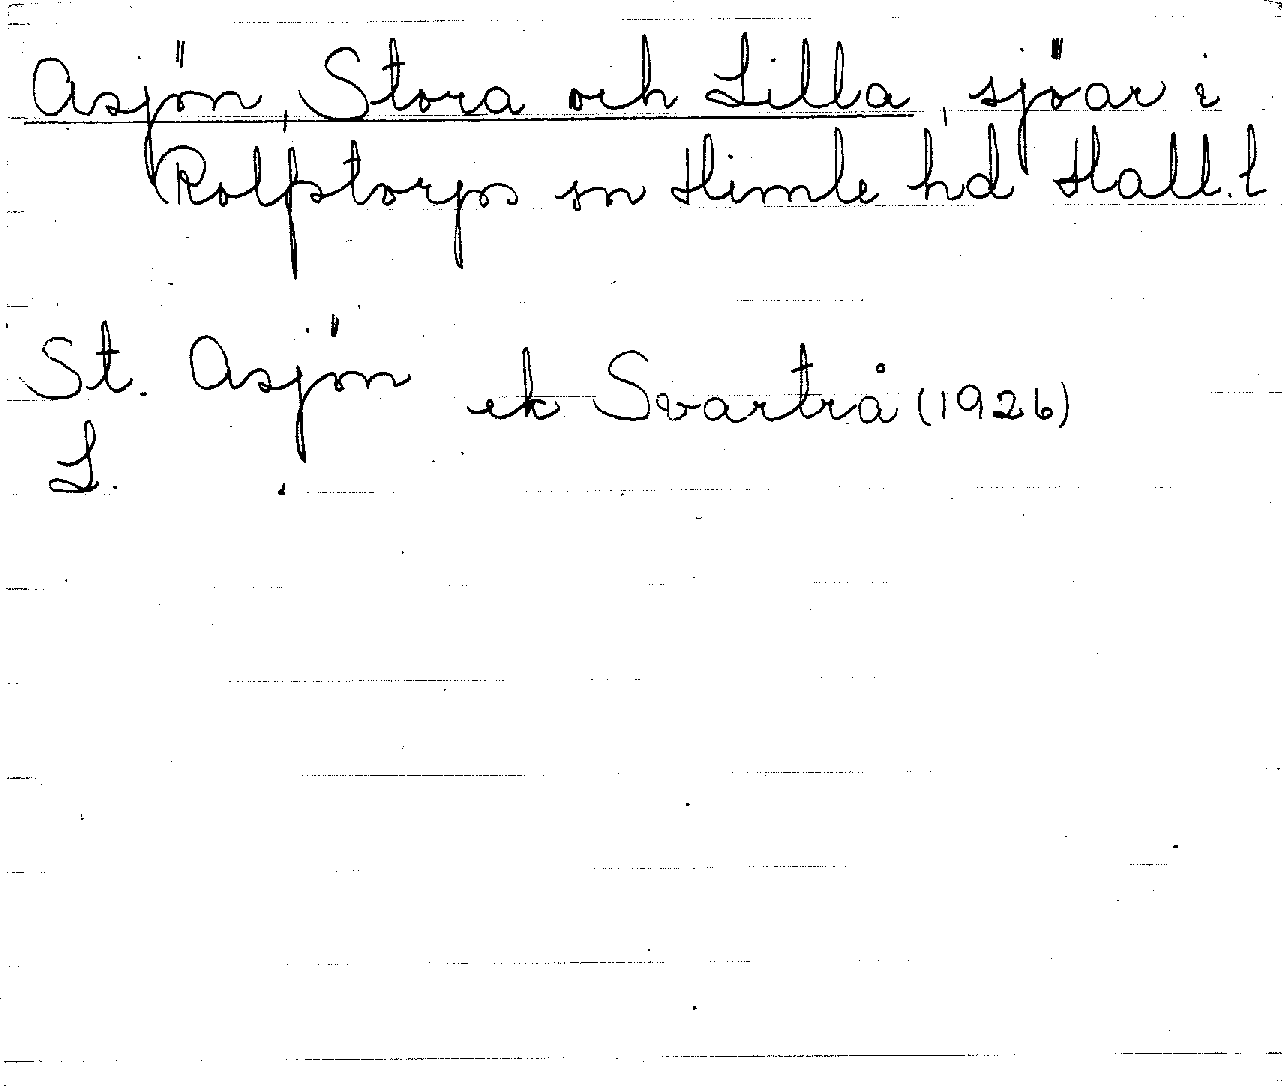 Asjön, Stora och Lilla, sjöar i
Rolfstorps sn Himle hd Hall. l
St. Asjön ek Svartrå (1926)
L. "